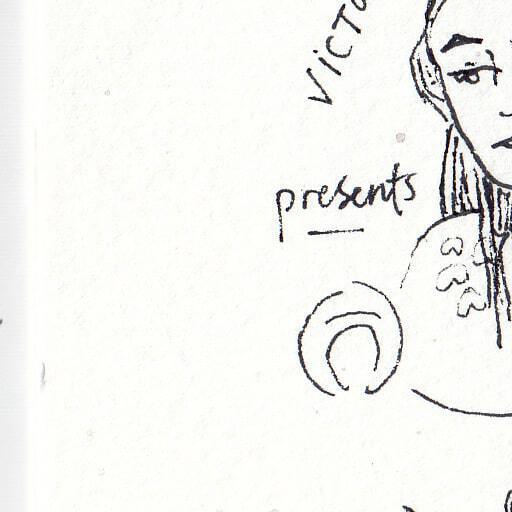 VICTO
presents